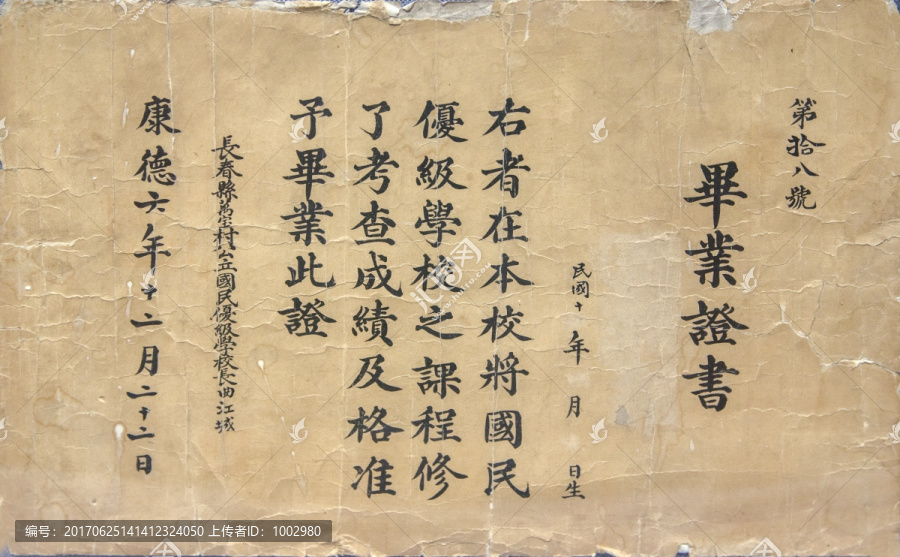 第拾八號
畢業證書
民國十 年 月 日生
右者在本校將國民
優級學校之課程修
了考查成績及格准
予畢業此證
長春縣萬宝村公立國民優級學校長曲江城
康德六年十二月二十二日
编号：20170625141412324050 上传者ID：1002980